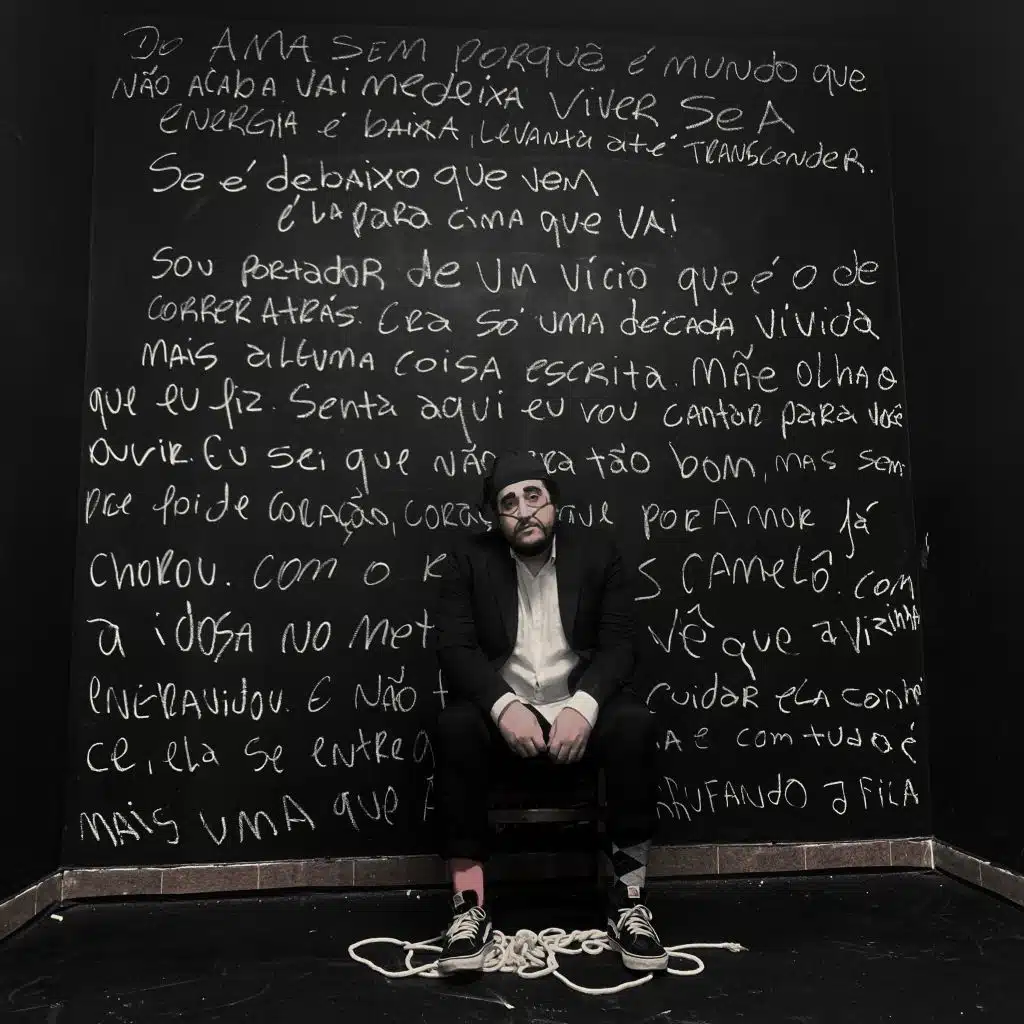 Do AMA SEM PORQUÊ é MUNDO que
NÃO ACABA VAI Me deixA VIVER Se A
ENERGIA é BAIXA, LEVANTA até TRANSCENDER.
Se é debAIXO que vem
é LA PARA CIMA que VAI
Sou PORTADOR de UM VÍCIO que é o de
CORRER ATRÁS. Era Só UMA décADA VIVIDA
MAIS ALGUMA COISA escrita. MÃe OLHA o
que eu fiz. Senta aqui eu vou CANTAR para você
OUVIR. Eu sei que NÃO tão bom, MAS sem
PRe foi de CORAÇÃO, que POR AMOR já
CHOROU. COM o S CAMELÔ. COM
a IDOSA NO Met VÊ que a VIZINHA
ENGRAVIDOU. E NÃO CUIDAR ELA CONHe
ce, ela se eNTReg e COM tudo é
MAIS UMA que A FILA